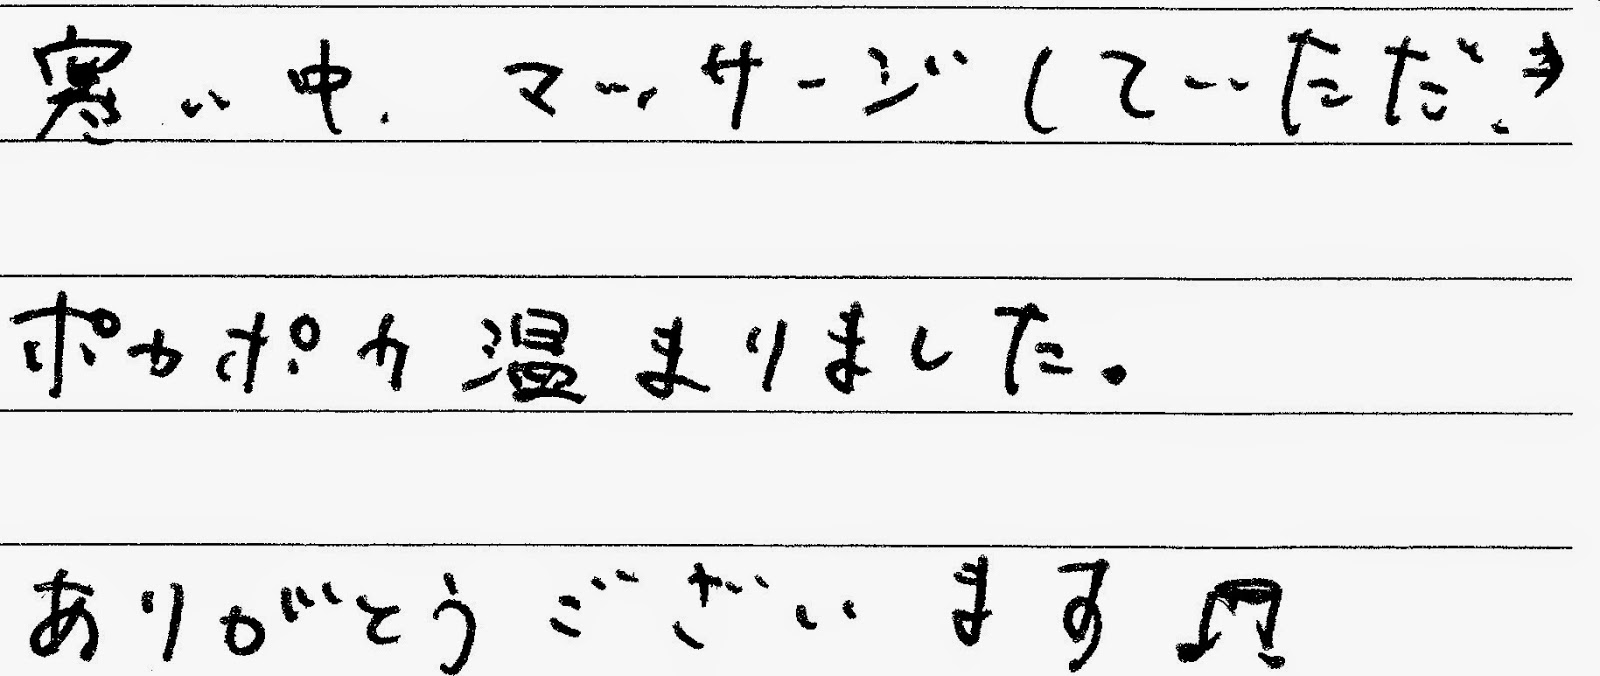 寒い中、マッサージしていただき
ポカポカ温まりました。
ありがとうございます♫